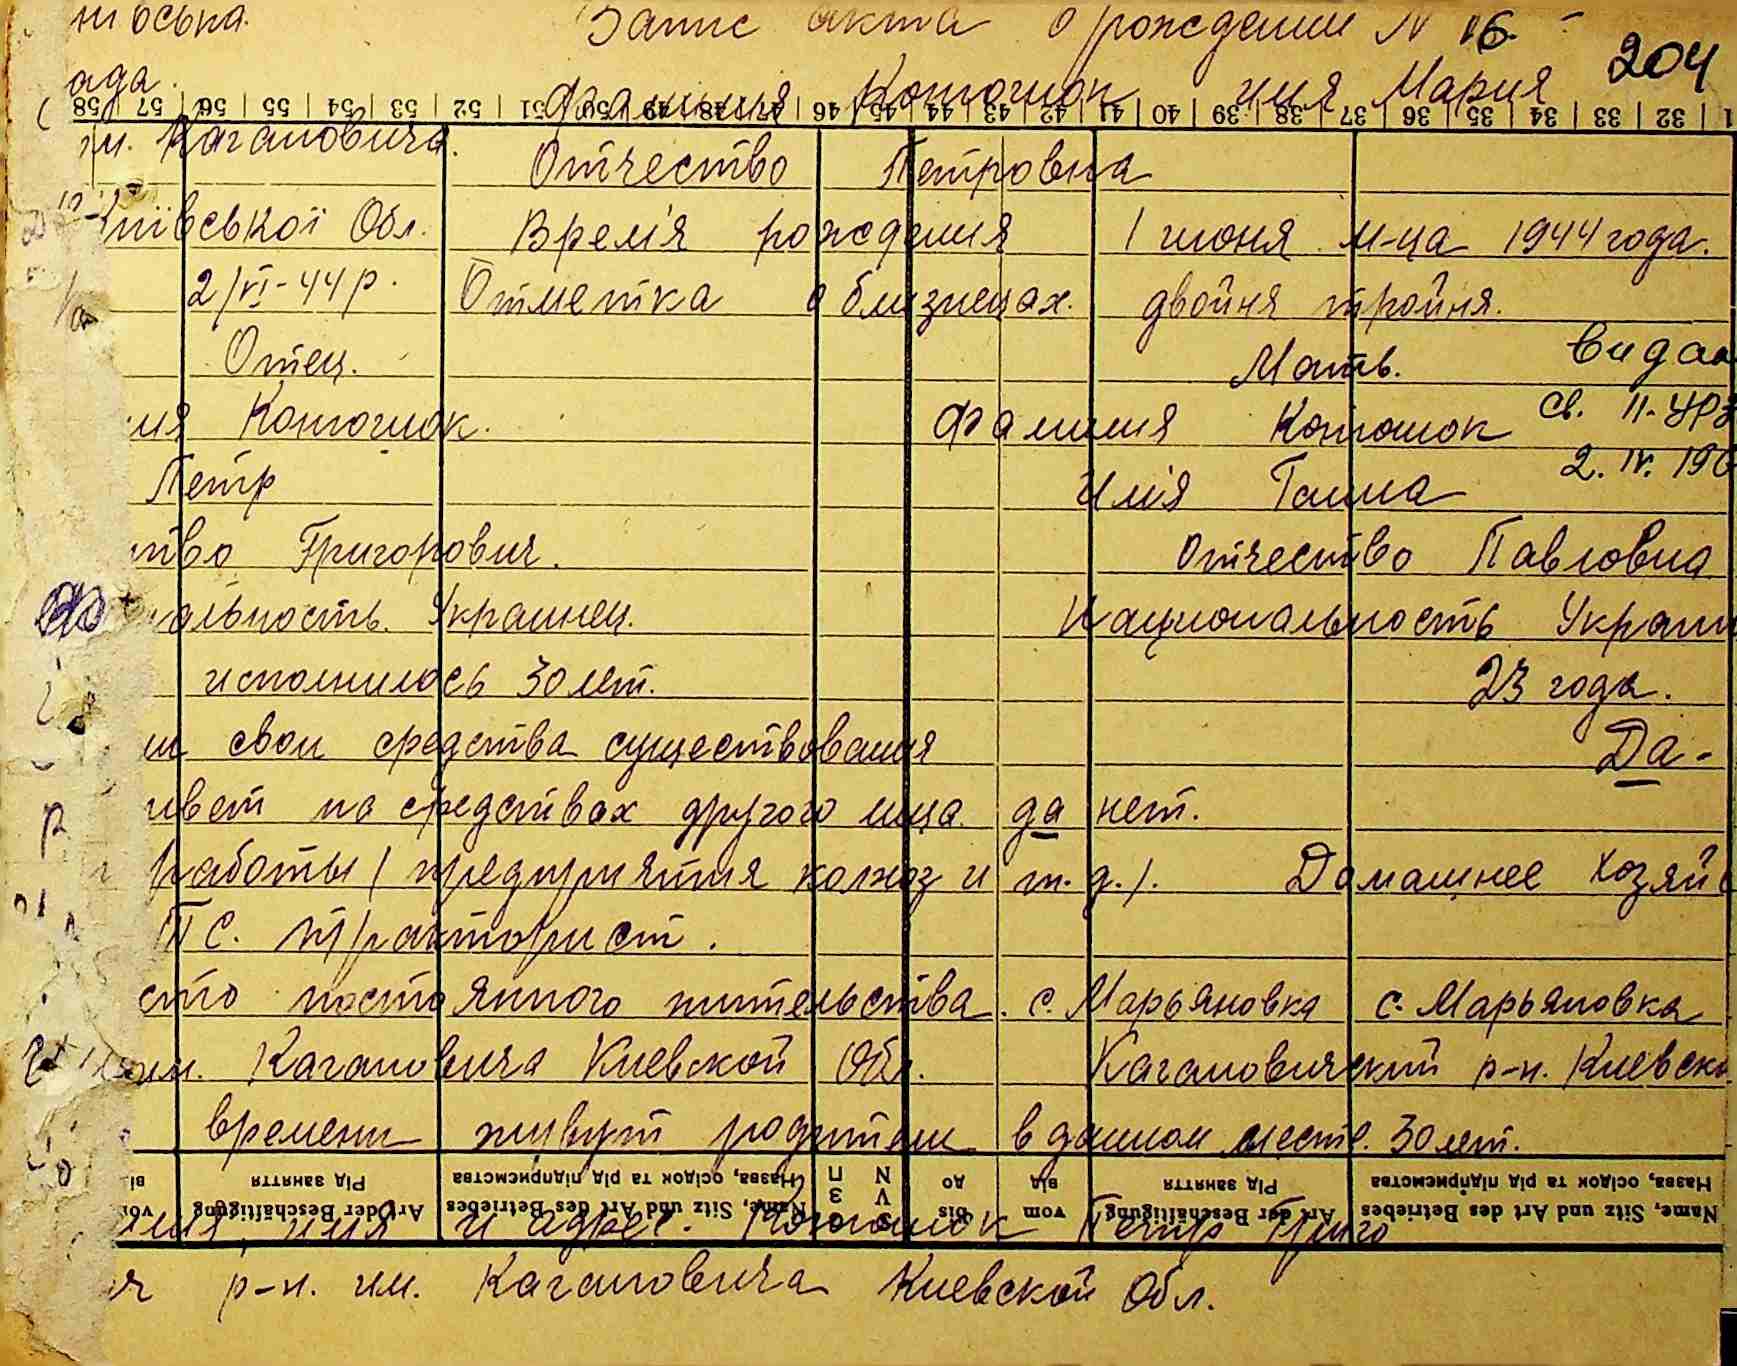 нюська. Запис акта о рождении N 16.
204
ада. фамилия Котючок имя Мария
58 | 57 | 56 | 55 | 54 | 53 | 52 | 51 | 50 | 49 | 48 | 47 | 46 | 45 | 44 | 43 | 42 | 41 | 40 | 39 | 38 | 37 | 36 | 35 | 34 | 33 | 32 |
им. Кагановича. Отчество Петровна
Київської Обл. Время рождения 1 июня м-ца 1944 года.
2/VI-44 р. Отметка о близнецах. двойня тройня.
Отец. Мать. Видан
ия фамилия св. II-УРЗ
Петр Имя Ганна 2. IV. 196
тво Григорович. Отчество Павловна
альность. Украинец. Национальность Украин
исполнилось 30 лет. 23 года.
ли свои средства существования Да-
ивет на средствах другого лица да нет.
работы (предприятия колхоз и т.д.). Домашнее хозяй
ТС. тракторист.
сто постоянного жительства. с. Марьяновка с. Марьяновка
им. Кагановича Киевской Обл. Кагановичский р-н. Киевско
времени живут родители в данном месте. 30 лет.
Рід заняття Назва, осідок та рід підприємства N П до від Рід заняття Назва, осідок та рід підприємства
Art der Beschäftigung Name, Sitz und Art des Betriebes bis vom Art der Beschäftigung Name, Sitz und Art des Betriebes
имя и адрес. Петр Григо
р-н. им. Кагановича Киевской Обл.